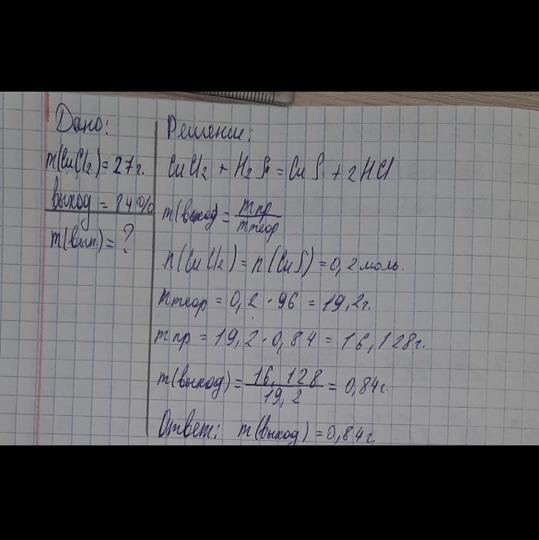 Дано:
m(CuCl₂)=27г.
выход = 84%
m(вып)=?
Решение:
CuCl₂ + H₂S = CuS + 2HCl
m(выход) = mпр / mтеор
n(CuCl₂) = n(CuS) = 0,2 моль.
mтеор = 0,2 · 96 = 19,2г.
mпр = 19,2 · 0,84 = 16,128г.
m(выход) = 16,128 / 19,2 = 0,84г.
Ответ: m(выход) = 0,84г